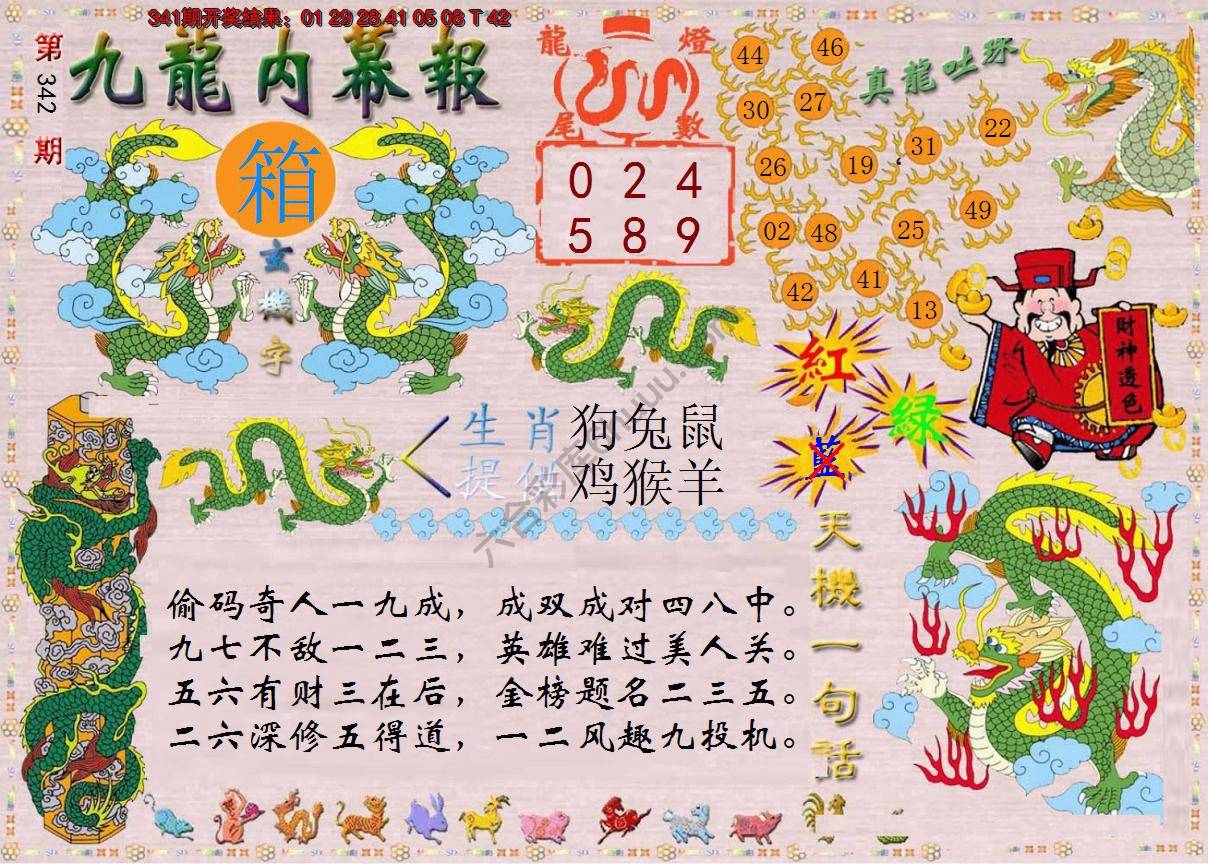 341期开奖结果：01 29 28 41 05 08 T 42
第342期
九龍內幕報
箱
玄機字
龍燈
尾數
0 2 4
5 8 9
真龍吐珠
44 46
30 27
26 19 31 22
02 48 25 49
42 41 13
財神透色
紅
綠
藍
生肖 狗兔鼠
提供 鸡猴羊
天機一句話
偷码奇人一九成，成双成对四八中。
九七不敌一二三，英雄难过美人关。
五六有财三在后，金榜题名二三五。
二六深修五得道，一二风趣九投机。